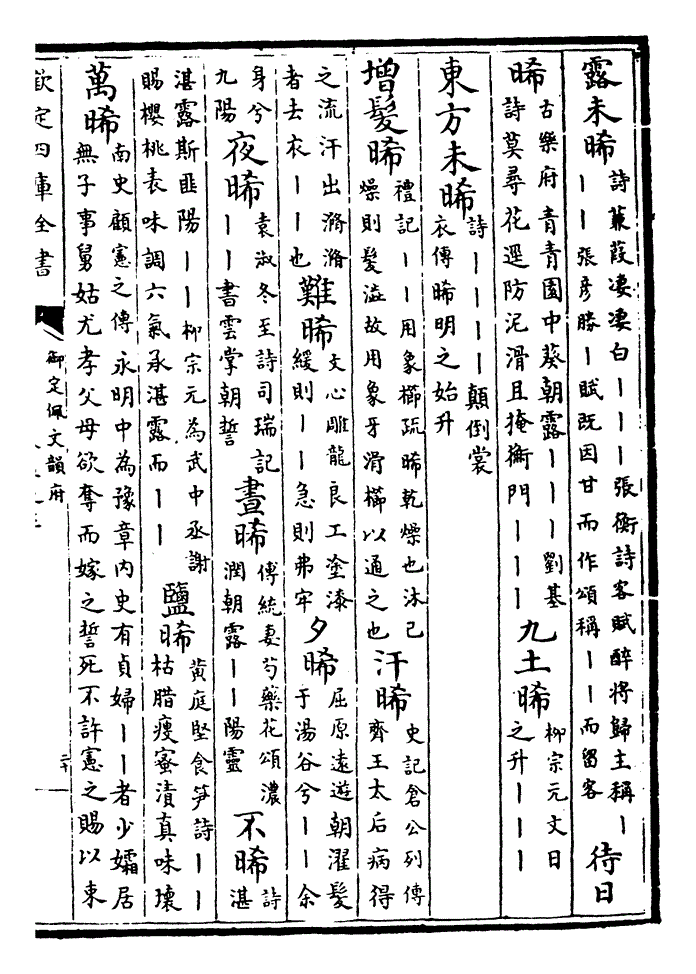 露未晞 詩蒹葭凄凄白丨丨丨張衡詩客賦醉將歸主稱丨丨丨張彦勝丨賦既因甘而作頌稱丨丨而留客 待日
晞 古樂府青青園中葵朝露丨丨丨劉基詩莫尋花逕防泥滑且掩衡門丨丨丨 九土晞 柳宗元文日之升丨丨丨
東方未晞 詩丨丨丨丨顛倒裳衣傳晞明之始升
增髮晞 禮記丨丨用象櫛疏晞乾燥也沐已燥則髮澁故用象牙滑櫛以通之也 汗晞 史記倉公列傳齊王太后病得
之流汗出滫滫者去衣丨丨也 難晞 文心雕龍良工塗漆緩則丨丨急則弗牢 夕晞 屈原遠遊朝濯髮于湯谷兮丨丨余
身兮九陽 夜晞 袁淑冬至詩司瑞記丨丨書雲掌朝誓 晝晞 傅統妻芍藥花頌濃潤朝露丨丨陽靈 不晞 詩湛
湛露斯匪陽丨丨柳宗元為武中丞謝賜櫻桃表味調六氣承湛露而丨丨 鹽晞 黄庭堅食笋詩丨丨枯腊瘦蜜漬真味壞
萬晞 南史顧憲之傳永明中為豫章内史有貞婦丨丨者少孀居無子事舅姑尤孝父母欲奪而嫁之誓死不許憲之賜以東
欽定四庫全書
御定佩文韻府